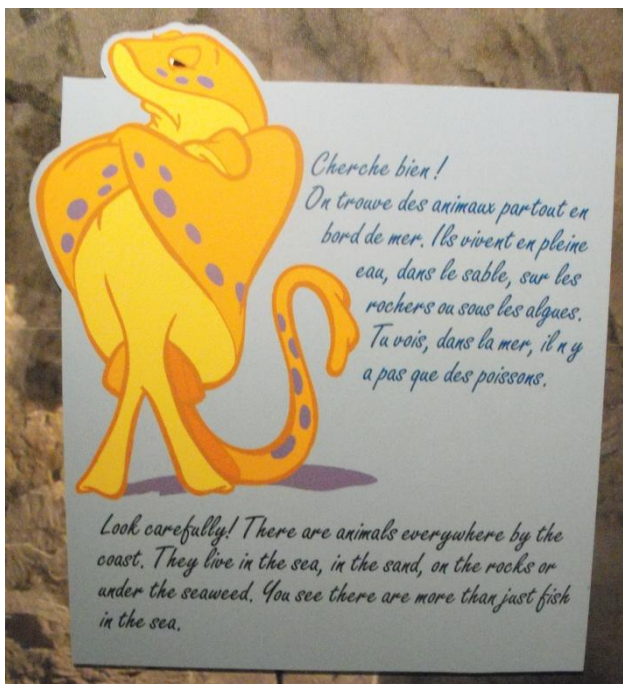 Cherche bien !
On trouve des animaux partout en
bord de mer. Ils vivent en pleine
eau, dans le sable, sur les
rochers ou sous les algues.
Tu vois, dans la mer, il n y
a pas que des poissons.
Look carefully! There are animals everywhere by the
coast. They live in the sea, in the sand, on the rocks or
under the seaweed. You see there are more than just fish
in the sea.